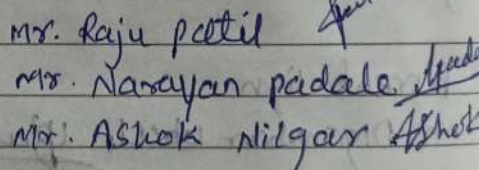 Mr. Raju patil
Mr. Narayan padale
Mr. Ashok Nilgar Ashok